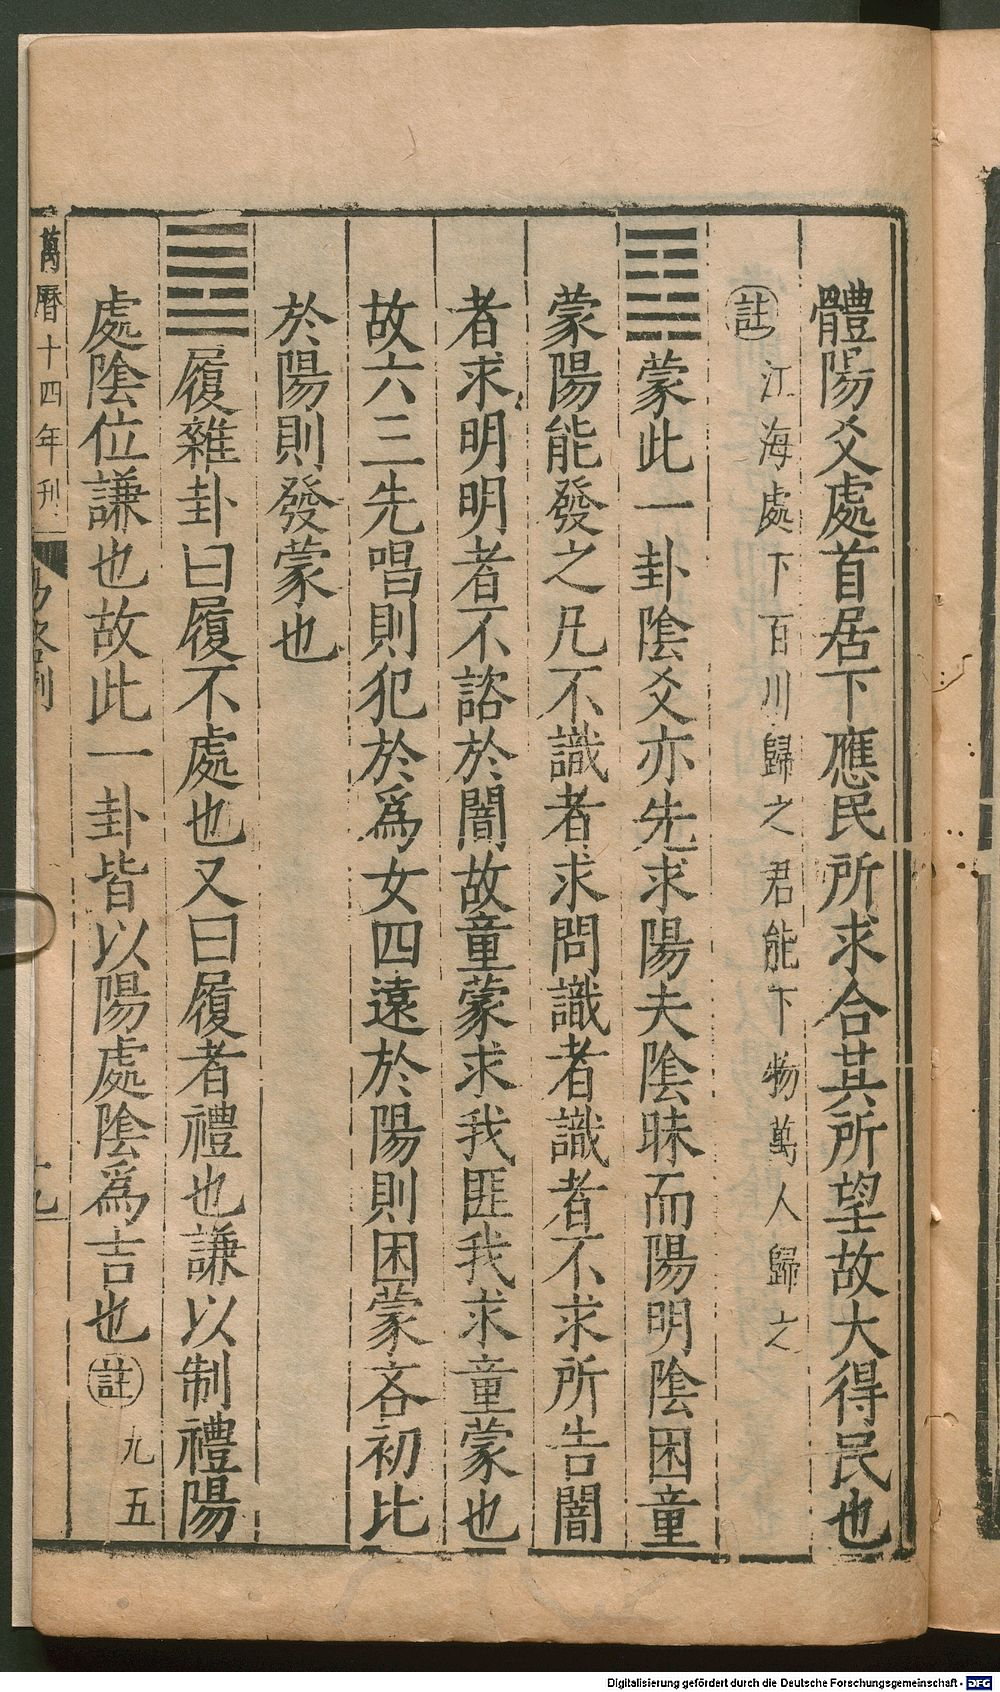 體陽爻處首居下應民所求合其所望故大得民也
註江海處下百川歸之君能下物萬人歸之
蒙此一卦陰爻亦先求陽夫陰昧而陽明陰困童
蒙陽能發之凡不識者求問識者識者不求所告闇
者求明明者不諮於闇故童蒙求我匪我求童蒙也
故六三先唱則犯於爲女四遠於陽則困蒙吝初比
於陽則發蒙也
履雜卦曰履不處也又曰履者禮也謙以制禮陽
處陰位謙也故此一卦皆以陽處陰爲吉也註九五
萬曆十四年刊
Digitalisierung gefördert durch die Deutsche Forschungsgemeinschaft - DFG